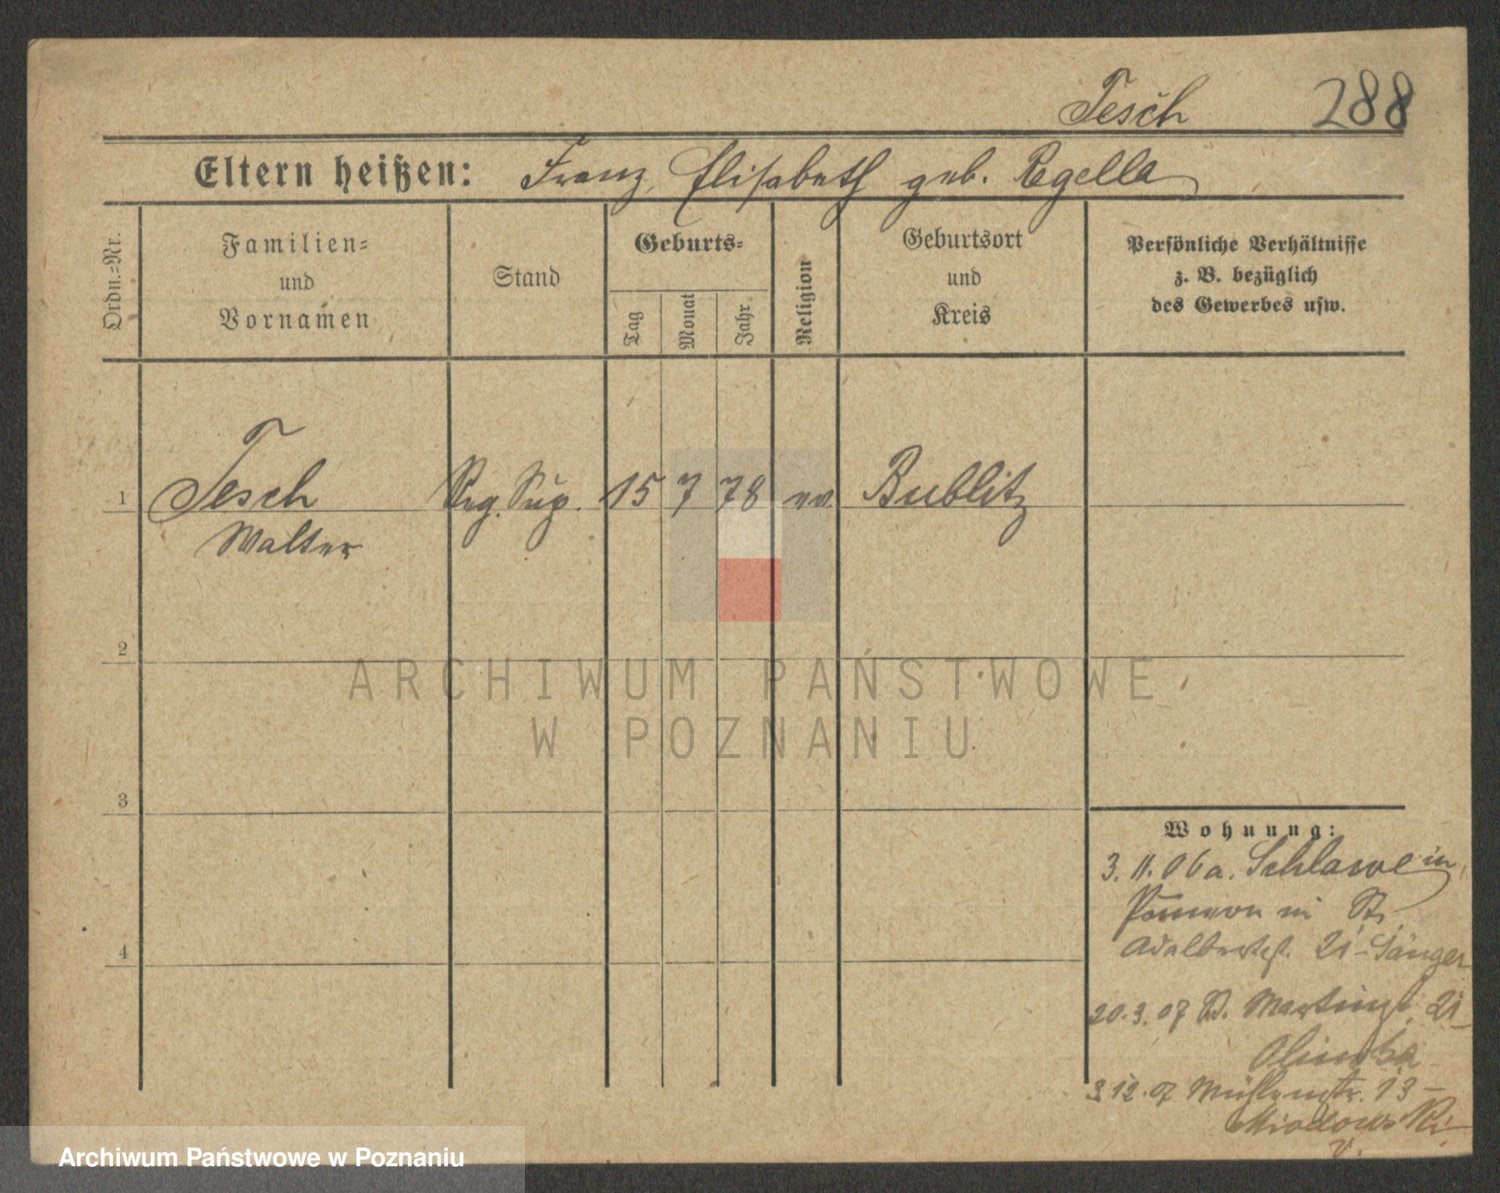 Tesch 288
Eltern heißen: Franz, Elisabeth geb. Rgella
Ordn.=Nr.
Familien=
und
Vornamen
Stand
Geburts=
Tag
Monat
Jahr
Religion
Geburtsort
und
Kreis
Persönliche Verhältnisse
z. B. bezüglich
des Gewerbes usw.
1 Tesch Reg. Sup. 15 7 78 ev. Bublitz
Walter
2
3
4
Wohnung:
3. 11. 06 a. Schlawe in
Pommern in St.
Adalbertst. 21 - Sänger
20.3.07 St. Martinst. 21 -
3 12. 07 Mühlenstr. 13 -
v.
ARCHIWUM PAŃSTWOWE
W POZNANIU
Archiwum Państwowe w Poznaniu